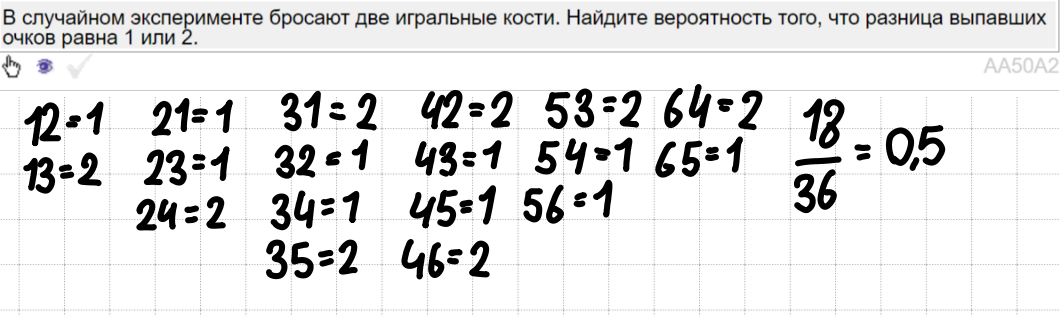 В случайном эксперименте бросают две игральные кости. Найдите вероятность того, что разница выпавших
очков равна 1 или 2.
AA50A2
12=1 21=1 31=2 42=2 53=2 64=2 18/36 = 0,5
13=2 23=1 32=1 43=1 54=1 65=1
24=2 34=1 45=1 56=1
35=2 46=2